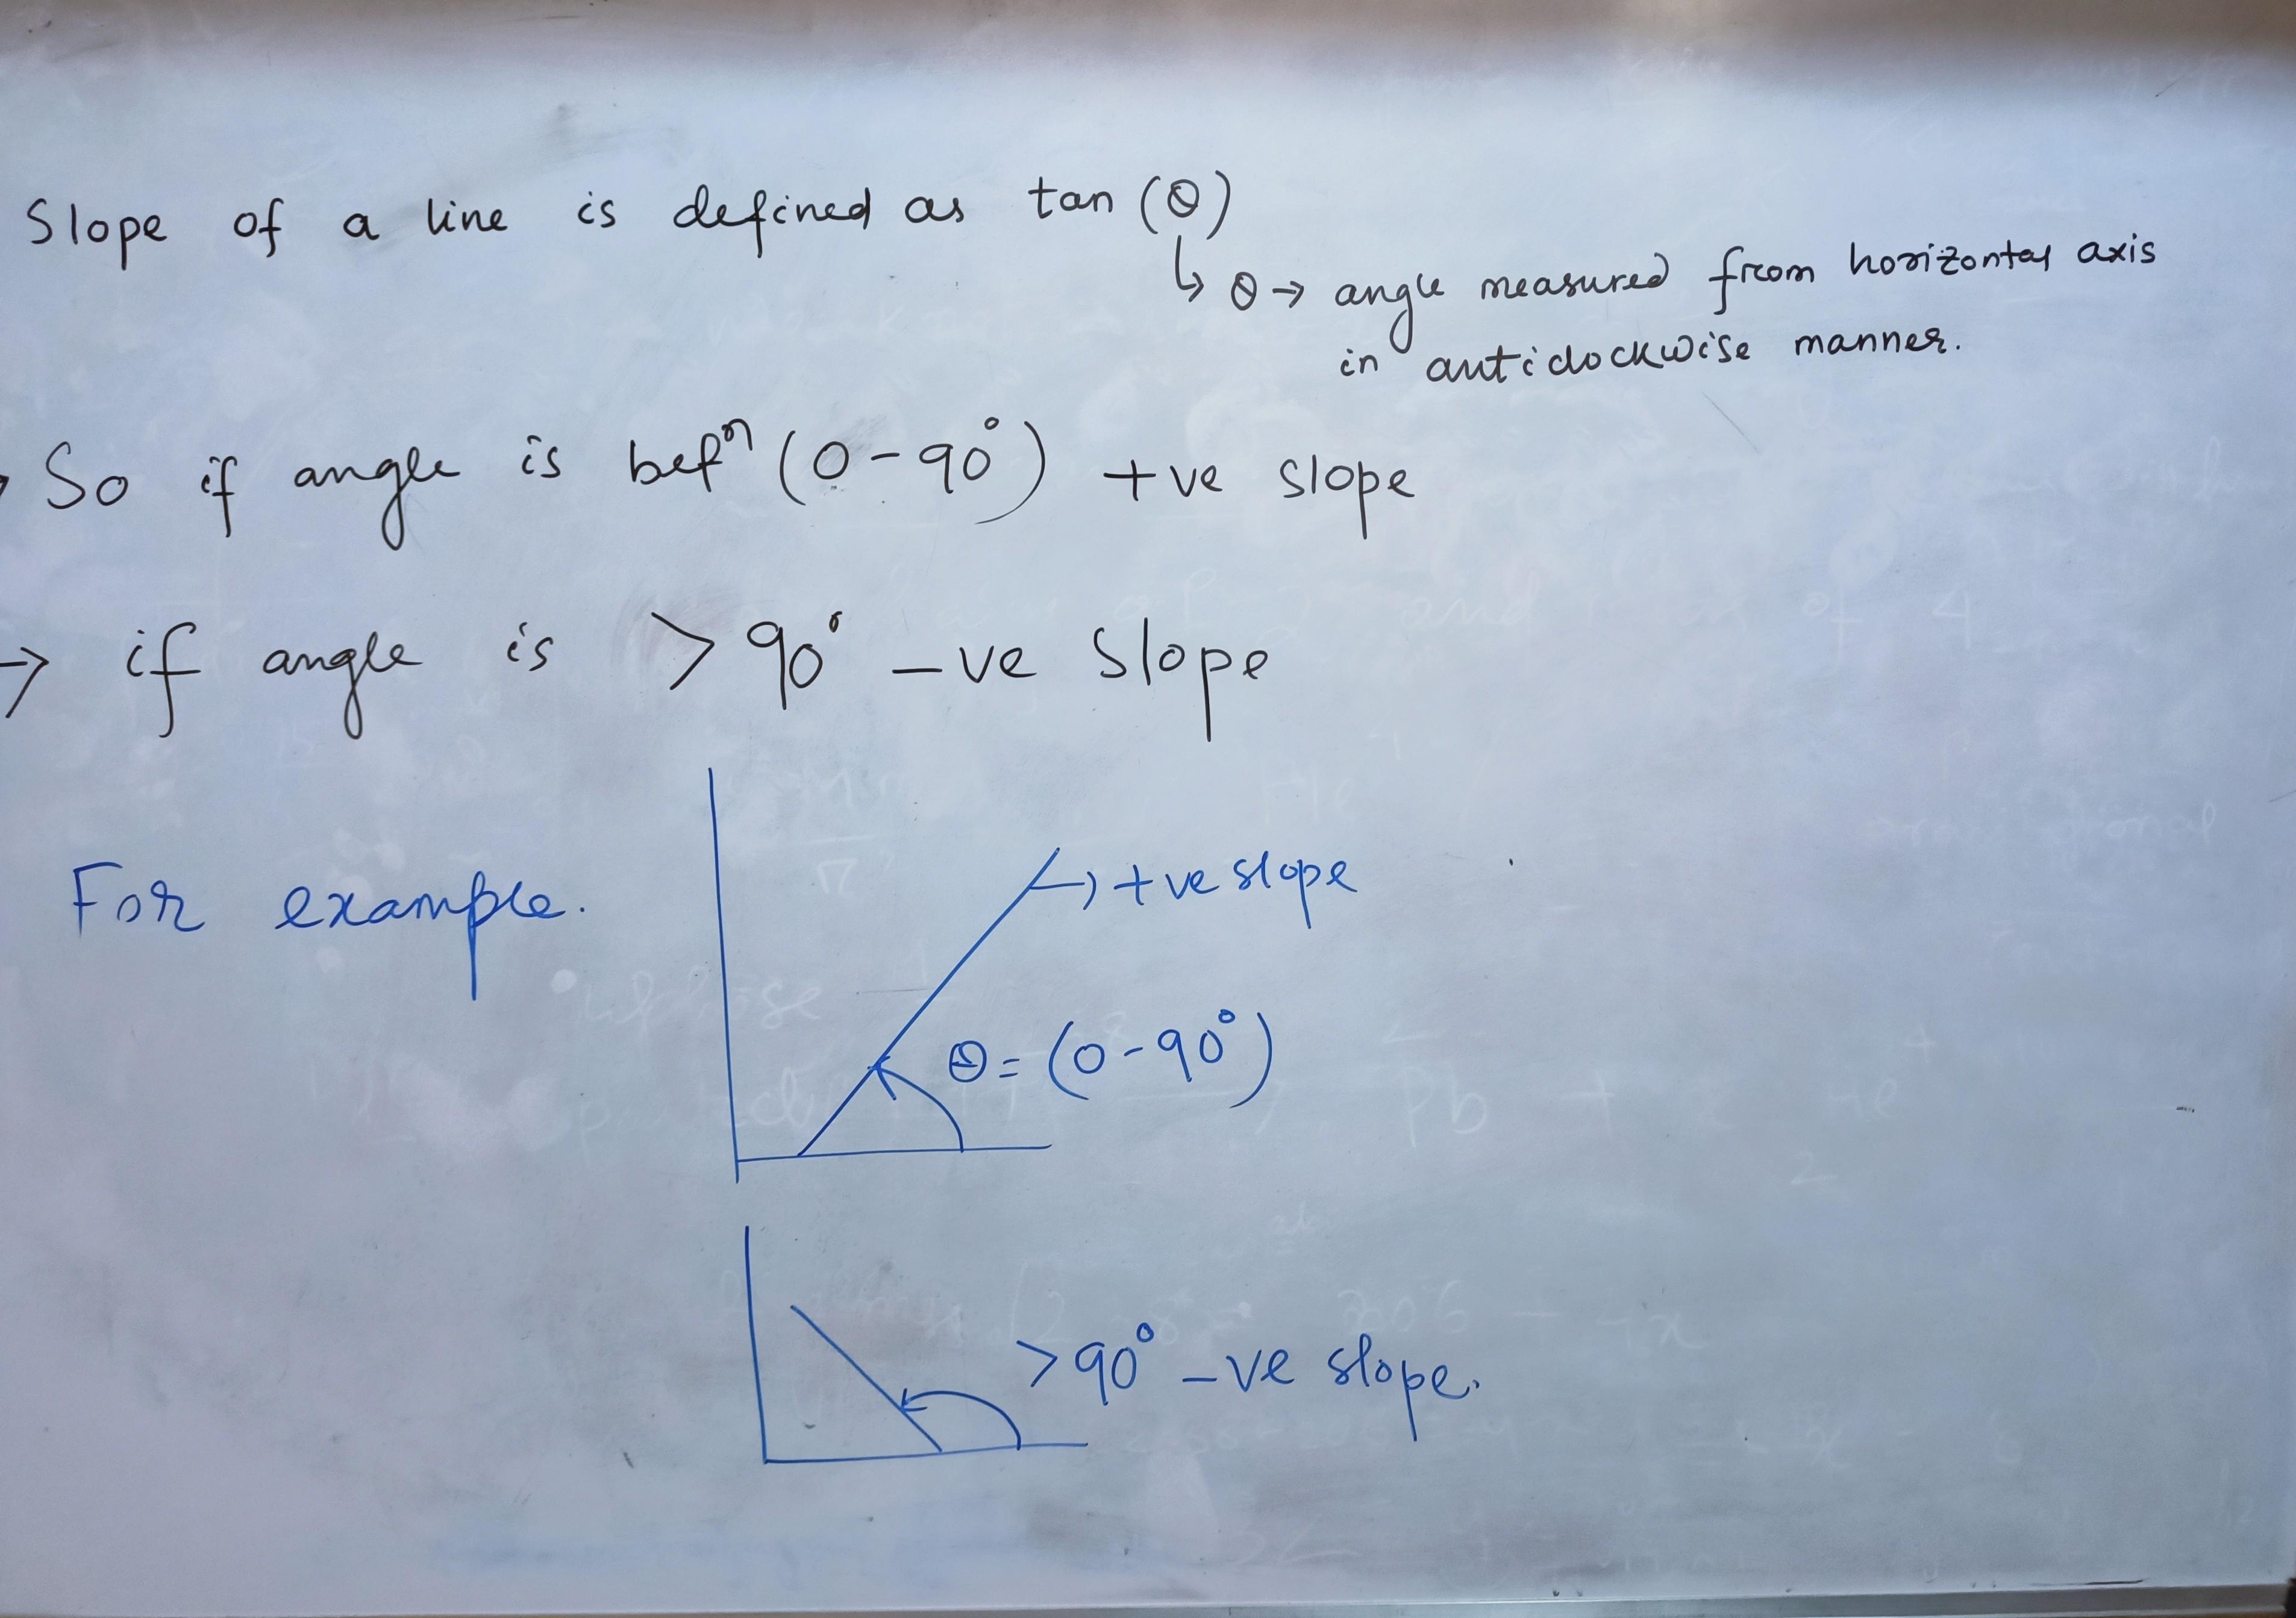 Slope of a line is defined as tan (θ)
↳ θ → angle measured from horizontal axis
in anticlockwise manner.
So if angle is betⁿ (0-90°) +ve slope
→ if angle is > 90° -ve slope
For example.
→ +ve slope
θ = (0-90°)
> 90° -ve slope.